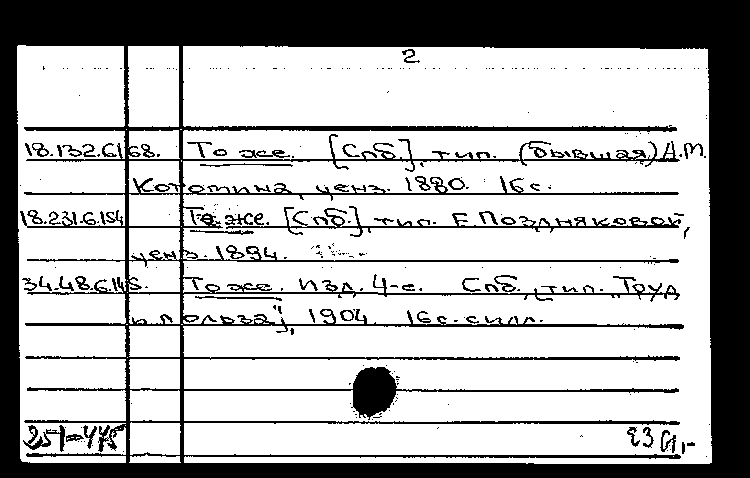 2
18.132.6.168. То же. [Спб.], тип. (бывшая) А.М.
Котомина, ценз. 1880. 16 с.
18.231.6.154 То же. [Спб.], тип. Е. Поздняковой,
ценз. 1894.
34.48.6.145. То же. Изд. 4-е. Спб., [тип. "Труд
и польза"], 1904. 16 с. с илл.
251-445